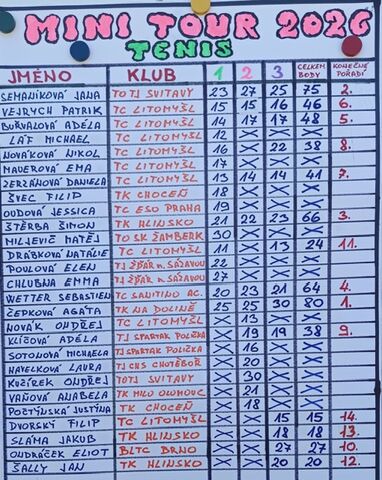 MINI TOUR 2026
TENIS
JMÉNO KLUB 1 2 3 CELKEM BODY KONEČNÉ POŘADÍ
SEMANÍKOVÁ JANA TOTJ SVITAVY 23 27 25 75 2.
VEJRYCH PATRIK TC LITOMYŠL 15 15 16 46 6.
BURVALOVÁ ADÉLA TC LITOMYŠL 14 17 17 48 5.
LÁF MICHAEL TC LITOMYŠL 12 X X X
NOVÁKOVÁ NIKOL TC LITOMYŠL 16 X 22 38 8.
MAUEROVÁ EMA TC LITOMYŠL 17 X X X
ZERZÁNOVÁ DANIELA TC LITOMYŠL 13 14 14 41 7.
ŠVEC FILIP TK CHOCEŇ 18 X X X
OUDOVÁ JESSICA TC ESO PRAHA 19 X X X
ŠTĚRBA ŠIMON TK HLINSKO 21 22 23 66 3.
MILJEVIČ MATĚJ TO SK ŽAMBERK 30 X X X
DRÁBKOVÁ NATÁLIE TC LITOMYŠL 11 X 13 24 11.
POULOVÁ ELEN TJ ŽĎÁR n. SÁZAVOU 22 X X X
CHLUBNA EMMA TJ ŽĎÁR n. SÁZAVOU 27 X X X
WETTER SEBASTIEN TC SANITINO AC. 20 23 21 64 4.
ČEPKOVÁ AGÁTA TK NA DOLINĚ 25 25 30 80 1.
NOVÁK ONDŘEJ TC LITOMYŠL X 13 X X
KLÍČOVÁ ADÉLA TJ SPARTAK POLIČKA X 19 19 38 9.
SOTONOVÁ MICHAELA TJ SPARTAK POLIČKA X 16 X X
HAVELKOVÁ LAURA TJ CHS CHOTĚBOŘ X 20 X X
KUČÍREK ONDŘEJ TOTJ SVITAVY X 30 X X
VAŇOVÁ ANABELA TK MILO OLOMOUC X 21 X X
POČTÝNSKÁ JUSTÝNA TK CHOCEŇ X 18 X X
DVORSKÝ FILIP TC LITOMYŠL X X 15 15 14.
SLÁMA JAKUB TK HLINSKO X X 18 18 13.
ONDRÁČEK ELIOT BLTC BRNO X X 27 27 10.
ŠALLY JAN TK HLINSKO X X 20 20 12.